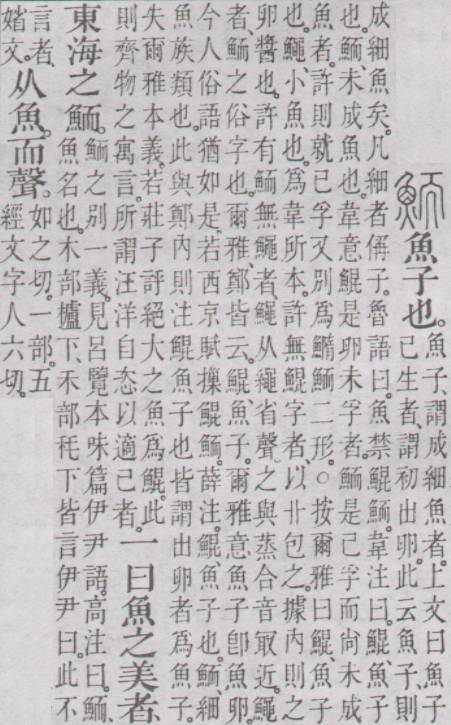 鮞魚子也。魚子、謂成細魚者。上文曰魚子
已生者、謂初出卵。此云魚子、則
成細魚矣。凡細者偁子。魯語曰。魚禁鯤鮞。韋注曰。鯤、魚子
也。鮞、未成魚也。韋意鯤是卵未孚者。鮞是已孚而尚未成
魚者。許則就已孚又別爲鱦鮞二形。○按爾雅曰。鯤、魚子
也。鱦、小魚也。爲韋所本。許無鯤字者、以卝包之。據内則之
卵醬也。許有鮞無鱦者、鱦从繩省聲。之與蒸合音冣近。鱦
者、鮞之俗字也。爾雅鄭皆云。鯤、魚子。爾雅意魚子卽魚卵。
今人俗語猶如是。若西京賦摷鯤鮞。薛注。鯤、魚子也。鮞、細
魚族類也。此與鄭内則注鯤魚子也皆謂出卵者爲魚子。
失爾雅本義。若莊子評絕大之魚爲鯤。此
則齊物之寓言。所謂汪洋自恣以適己者。
一曰魚之美者
東海之鮞。鮞之別一義。見呂覽本味篇伊尹語。高注曰。鮞、
魚名也。木部櫨下、禾部秏下皆言伊尹曰。此不
言者、
媘文。
从魚。而聲。如之切。一部。五
經文字人六切。